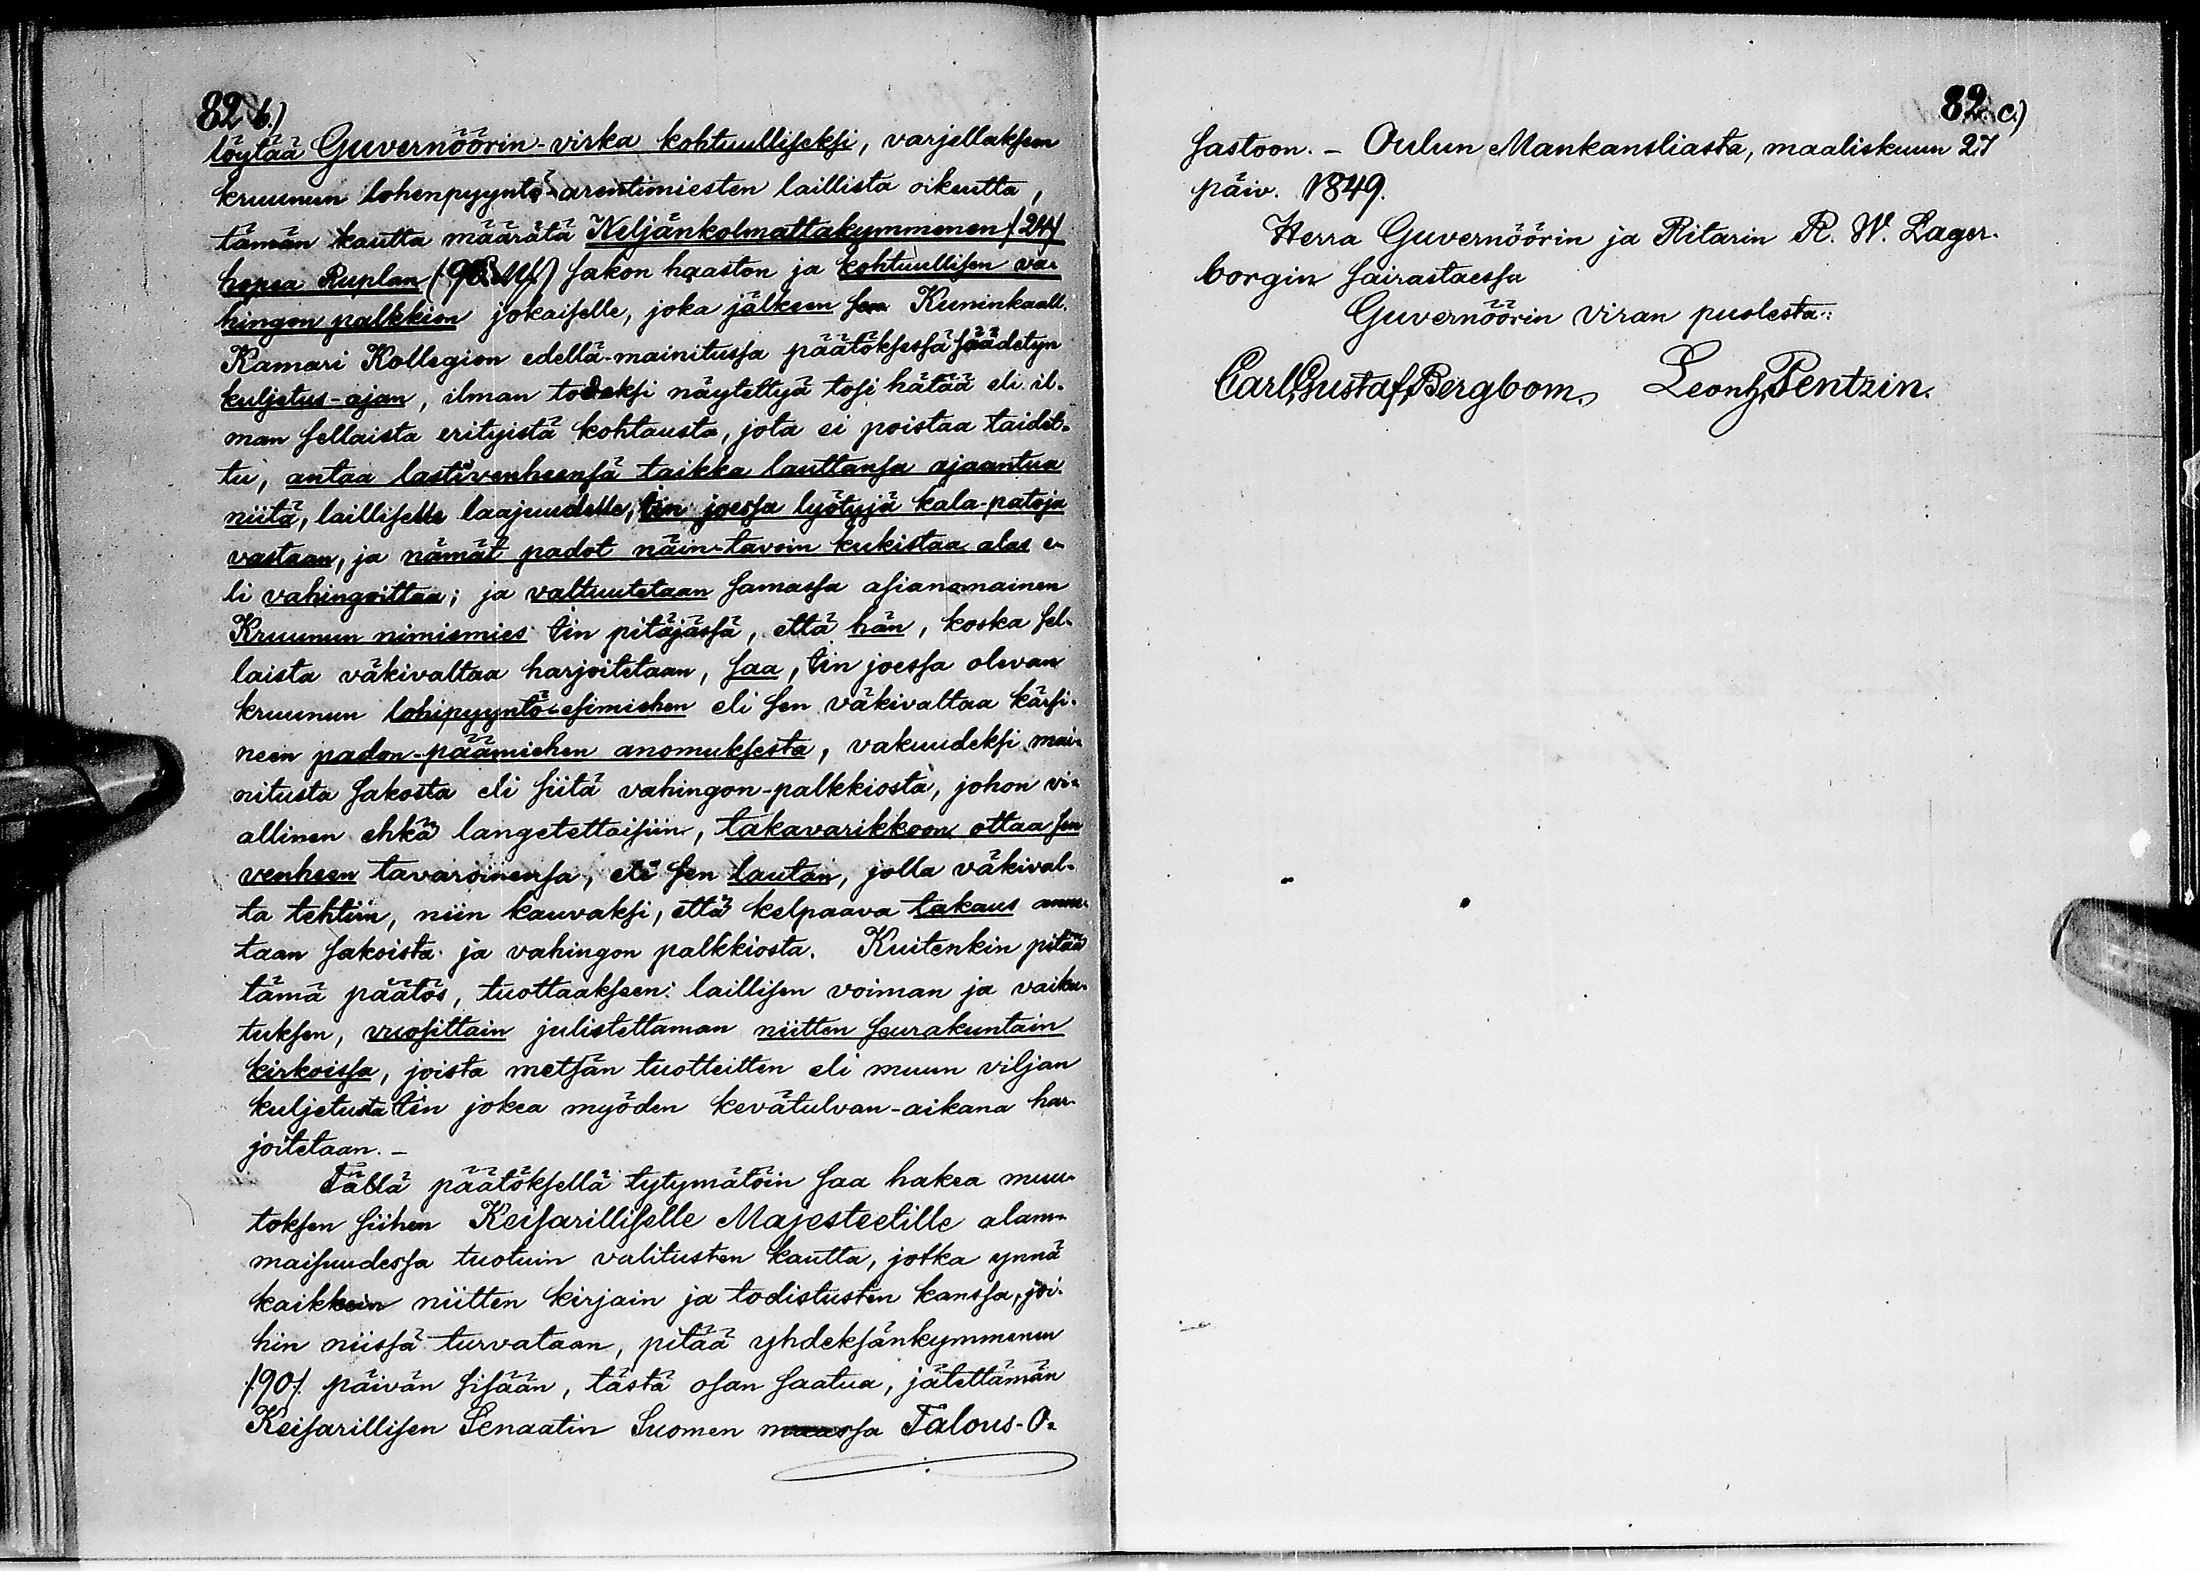 82 b.)
löytää Guvernöörin-virka kohtuulliseksi, varjellaksen
kruunun lohenpyyntö-arentimiesten laillista oikeutta,
tämän kautta määrätä Neljänkolmattakymmenen /24/
hopea Ruplan sakon haaston ja kohtuullisen va-
hingon palkkion jokaiselle, joka jälkeen sen Kuninkaall.
Kamari Kollegion edellä-mainitussa päätöksessä säädetyn
kuljetus-ajan, ilman todeksi näytettyä tosi hätää eli il-
man sellaista erityistä kohtausta, jota ei poistaa taidet-
tu, antaa lastivenheensä taikka lauttansa ajaantua
niitä, lailliselle laajuudelle, Iin joessa lyötyjä kala-patoja
vastaan, ja nämät padot näin-tavoin kukistaa alas e-
li vahingoittaa; ja valtuutetaan samassa asianomainen
Kruunun nimismies Iin pitäjässä, että hän, koska sel-
laista väkivaltaa harjoitetaan, saa, Iin joessa olevan
kruunun lohipyyntö-esimiehen eli sen väkivaltaa kärsi-
neen padon-päämiehen anomuksesta, vakuudeksi mai-
nitusta sakosta eli siitä vahingon-palkkiosta, johon vi-
allinen ehkä langetettaisiin, takavarikkoon ottaa sen
venheen tavaroinensa, eli sen lautan, jolla väkival-
ta tehtiin, niin kauvaksi, että kelpaava takaus anne-
taan sakoista ja vahingon palkkiosta. Kuitenkin pitää
tämä päätös, tuottaakseen laillisen voiman ja vaiku-
tuksen, vuosittain julistettaman niitten seurakuntain
kirkoissa, joista metsän tuotteitten eli muun viljan
kuljetusta Iin jokea myöden kevätulvan-aikana har-
joitetaan. -
Tällä päätöksellä tytymätöin saa hakea muu-
toksen siihen Keisarilliselle Majesteetille alam-
maisuudessa tuotuin valitusten kautta, jotka ynnä
kaikkein niitten kirjain ja todistusten kanssa, joi-
hin niissä turvataan, pitää yhdeksänkymmenen
/90/. päivän sisään, tästä osan saatua, jätettämän
Keisarillisen Senaatin Suomen maassa Talous-O-
82. c.)
sastoon. - Oulun Maankansliasta, maaliskuun 27
päiv. 1849.
Herra Guvernöörin ja Ritarin R. W. Lager-
borgin sairastaessa
Guvernöörin viran puolesta:
Carl Gustaf Bergbom. Leonh. Pentzin.